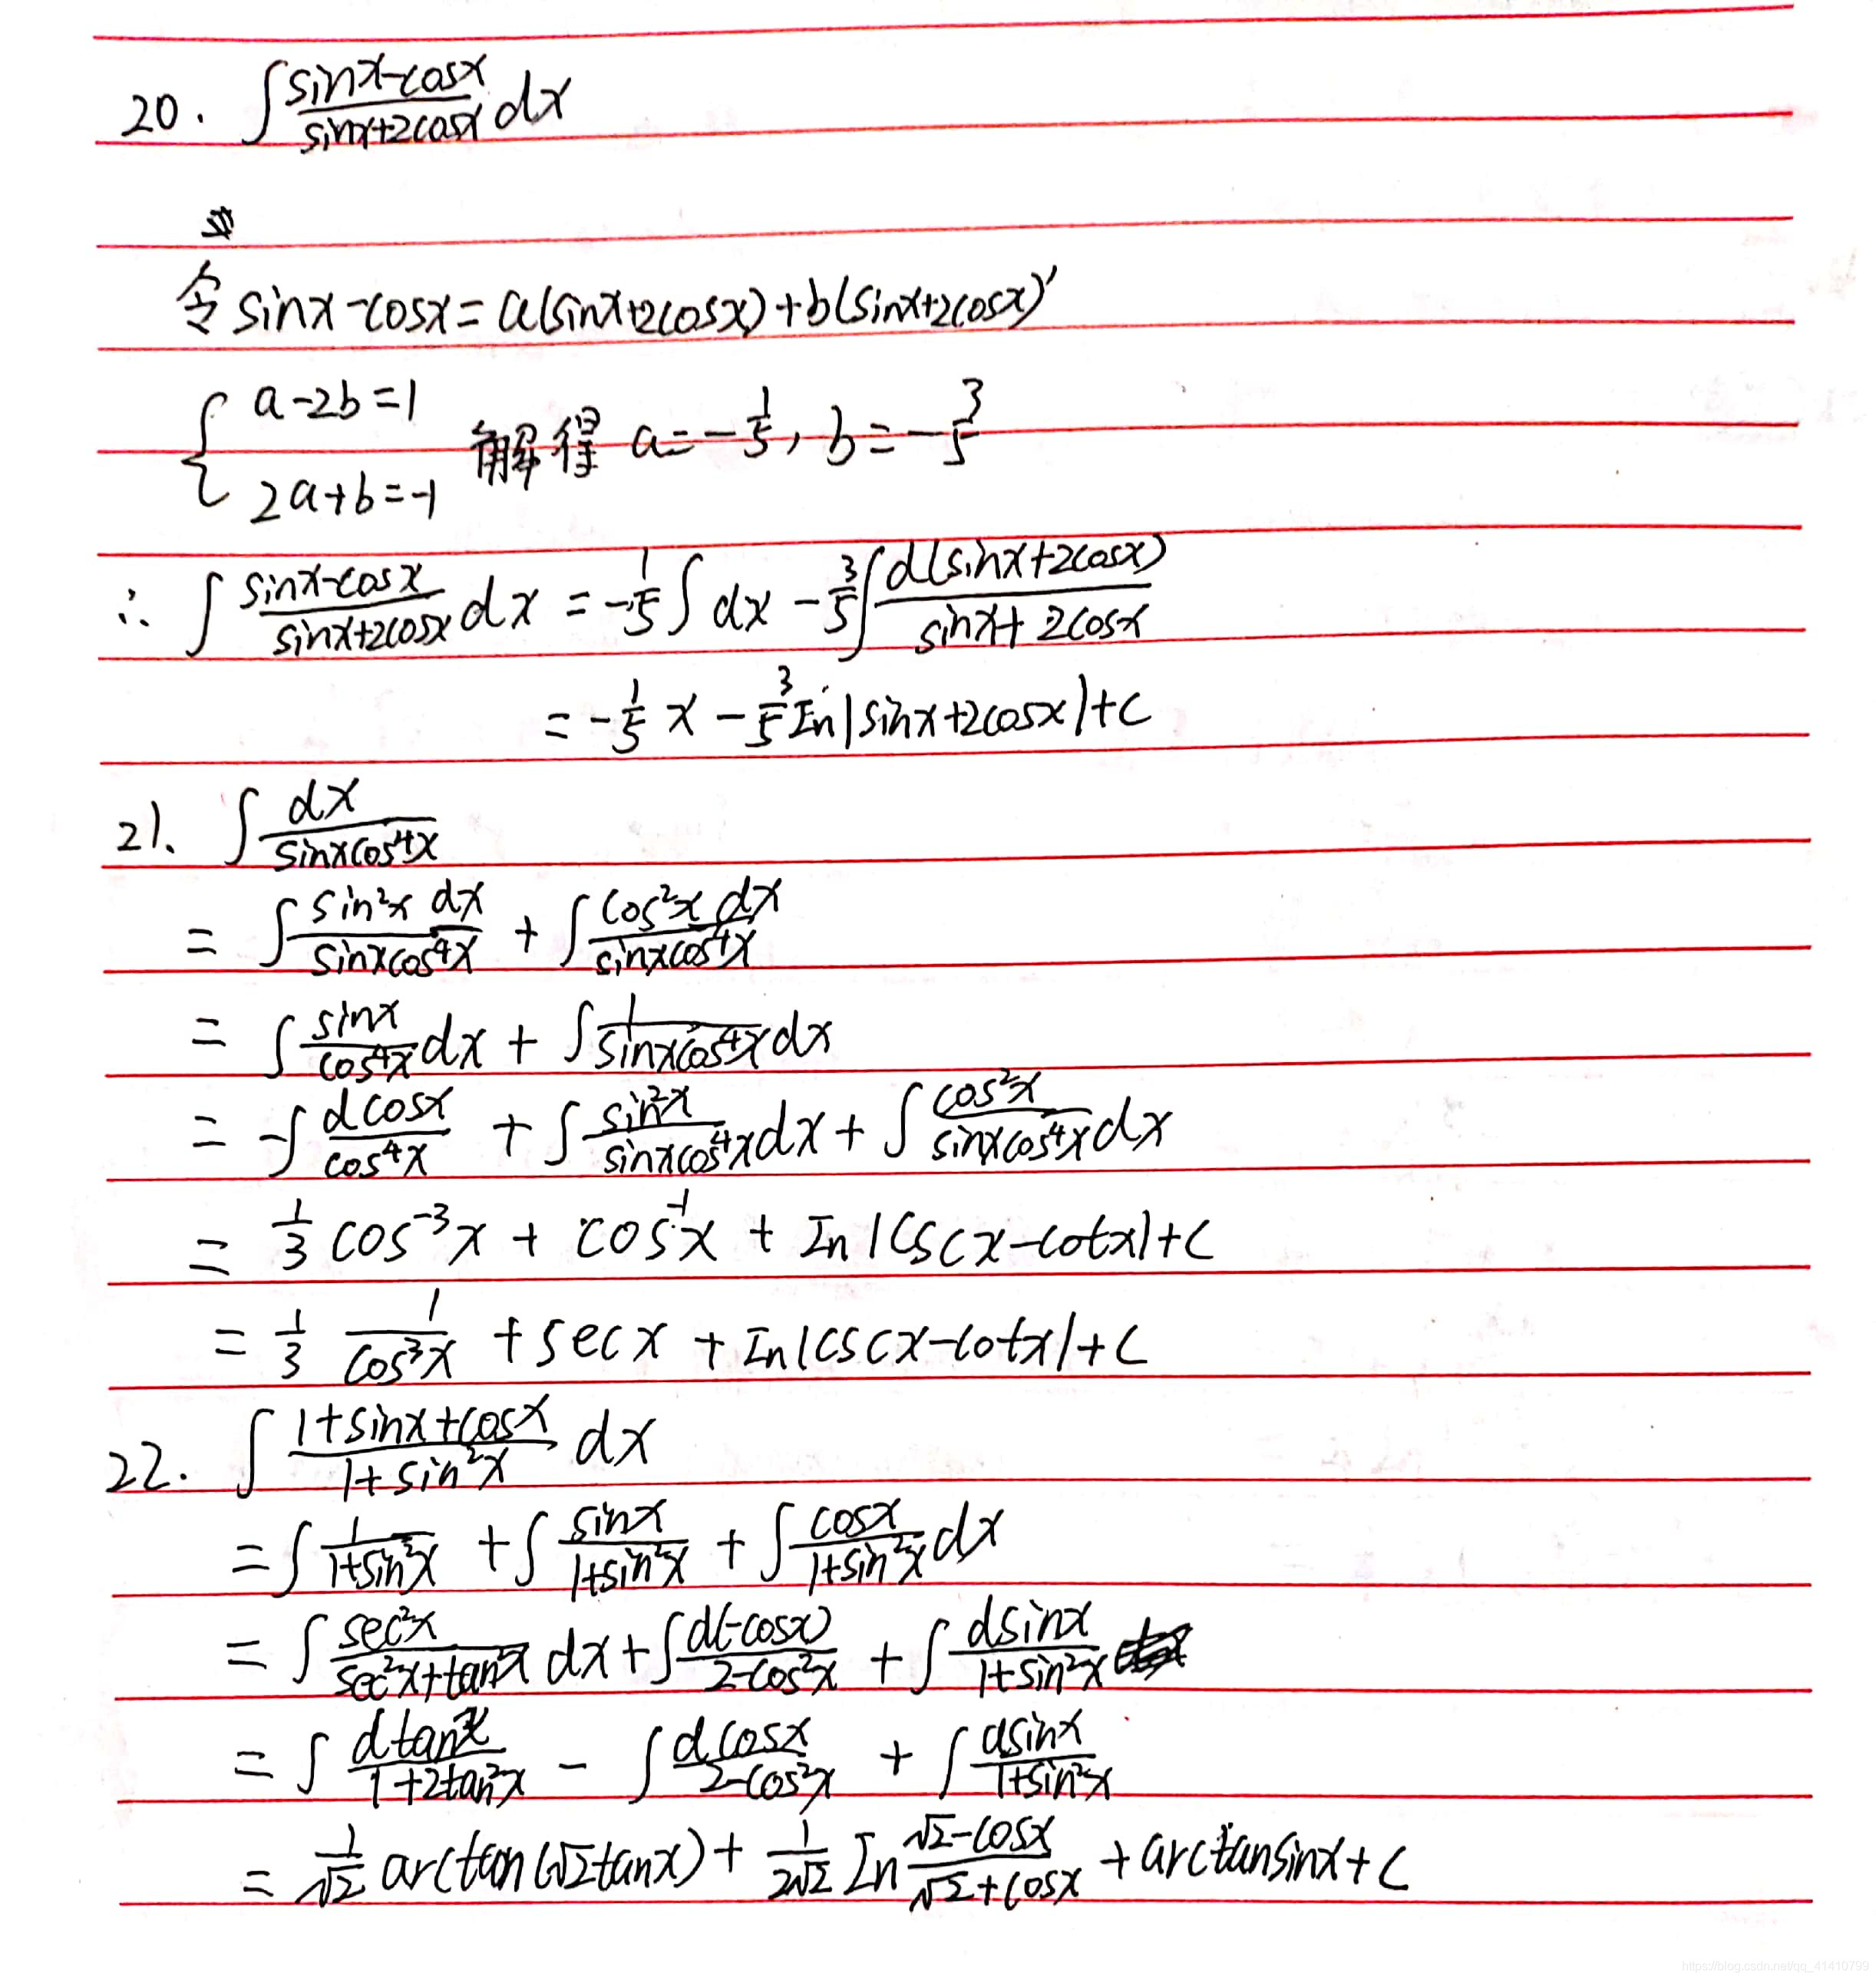 20. ∫ (sinx-cosx)/(sinx+2cosx) dx
令 sinx-cosx = a(sinx+2cosx)+b(sinx+2cosx)'
{ a-2b=1
2a+b=-1 解得 a=-1/5, b=-3/5
∴ ∫ (sinx-cosx)/(sinx+2cosx) dx = -1/5 ∫ dx - 3/5 ∫ d(sinx+2cosx)/(sinx+2cosx)
= -1/5 x - 3/5 In|sinx+2cosx|+C
21. ∫ dx/(sinxcos⁴x)
= ∫ sin²x dx/(sinxcos⁴x) + ∫ cos²x dx/(sinxcos⁴x)
= ∫ sinx/cos⁴x dx + ∫ 1/(sinxcos⁴x) dx
= -∫ dcosx/cos⁴x + ∫ sin²x/(sinxcos⁴x) dx + ∫ cos²x/(sinxcos⁴x) dx
= 1/3 cos⁻³x + cos⁻¹x + In|cscx-cotx|+C
= 1/3 1/cos³x + secx + In|cscx-cotx|+C
22. ∫ (1+sinx+cosx)/(1+sin²x) dx
= ∫ 1/(1+sin²x) + ∫ sinx/(1+sin²x) + ∫ cosx/(1+sin²x) dx
= ∫ sec²x/(sec²x+tan²x) dx + ∫ d(-cosx)/(2-cos²x) + ∫ dsinx/(1+sin²x)
= ∫ dtanx/(1+2tan²x) - ∫ dcosx/(2-cos²x) + ∫ dsinx/(1+sin²x)
= 1/√2 arctan(√2tanx) + 1/(2√2) In (√2-cosx)/(√2+cosx) + arctansinx+C
https://blog.csdn.net/qq_41410799